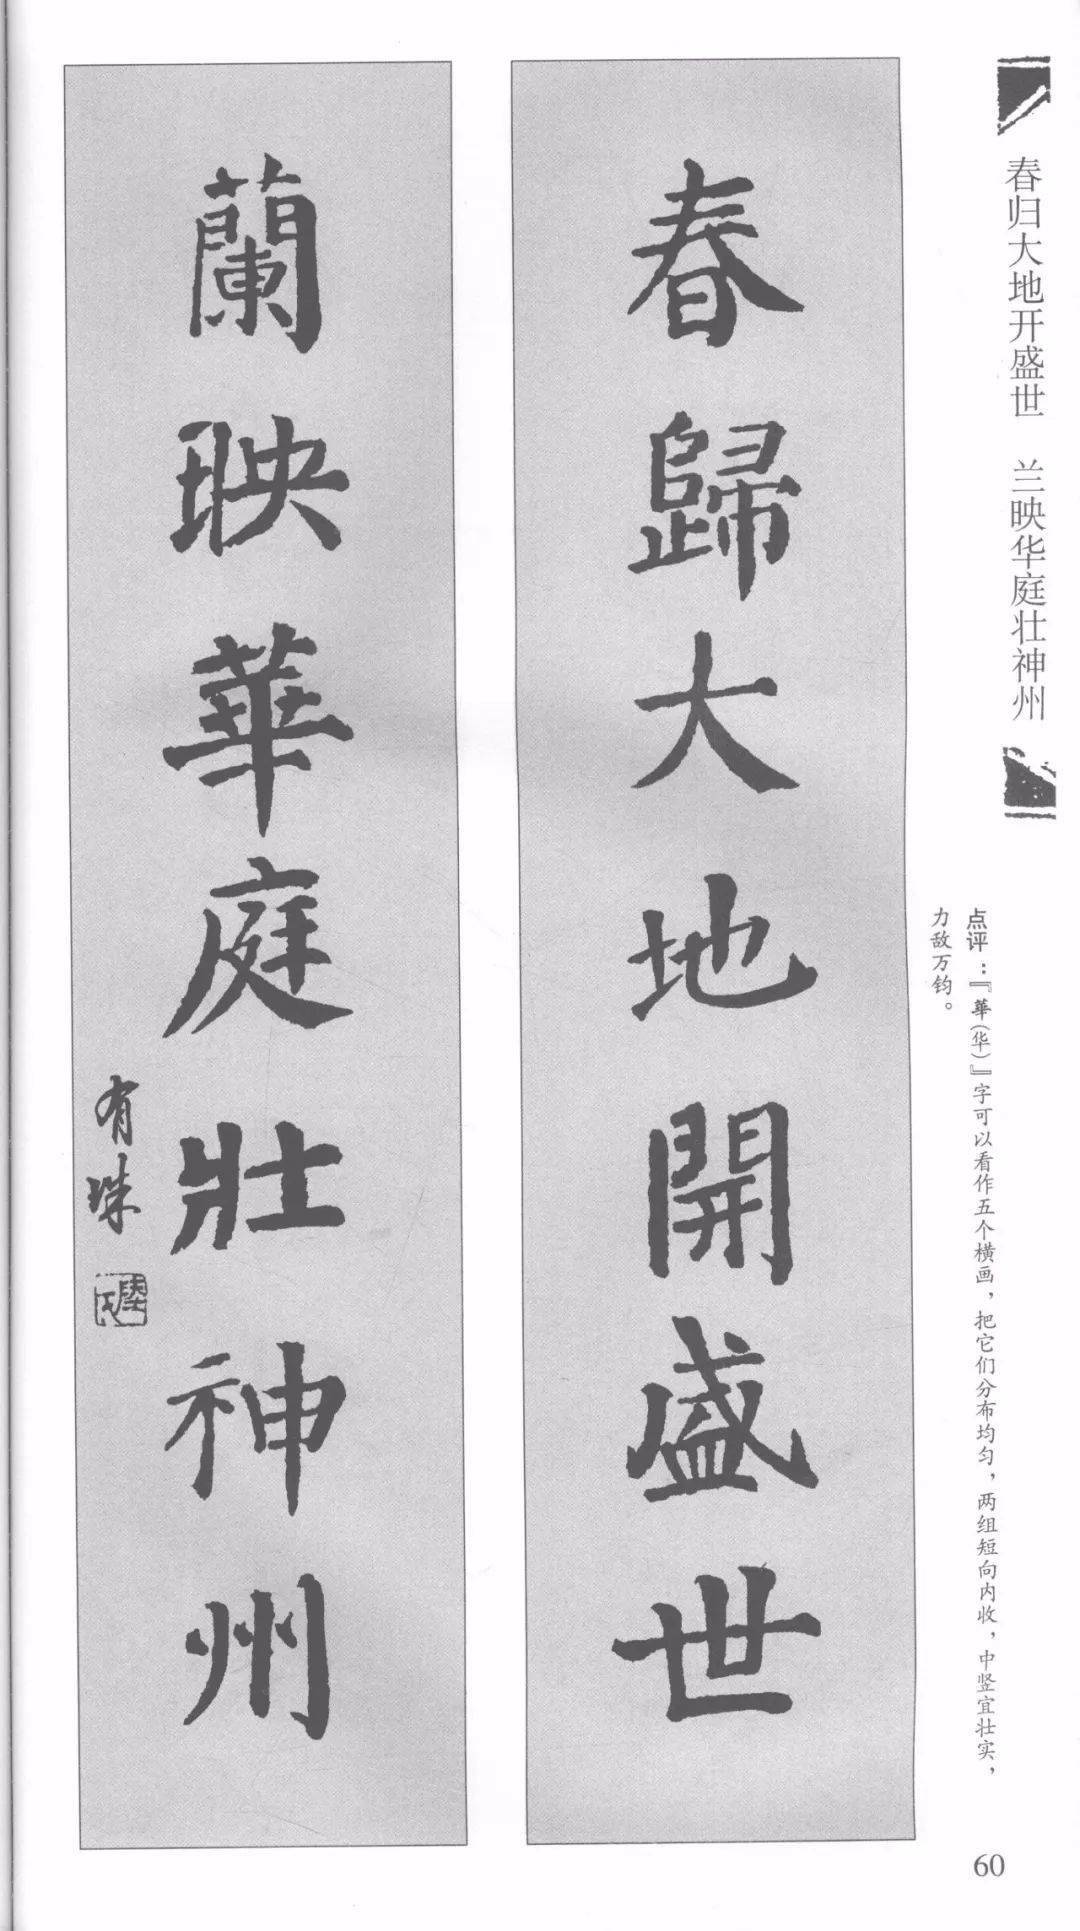 春归大地开盛世　兰映华庭壮神州
点评：『華(华)』字可以看作五个横画，把它们分布均匀，两组短向内收，中竖宜壮实，
力敌万钧。
春歸大地開盛世
蘭映華庭壯神州
有珠
60